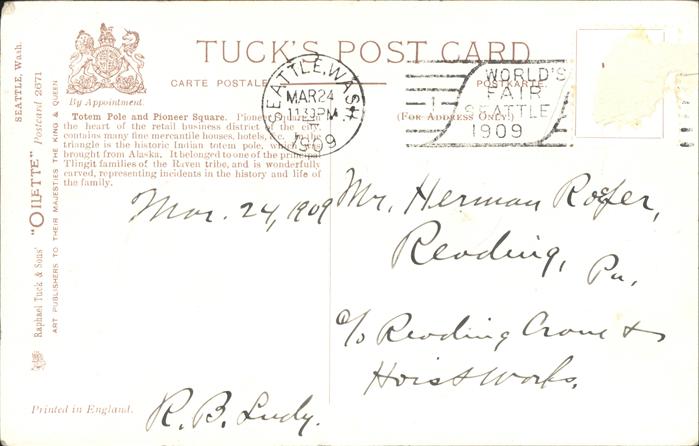 SEATTLE, Wash.
Raphael Tuck & Sons' "OILETTE" Postcard 2671
ART PUBLISHERS TO THEIR MAJESTIES THE KING & QUEEN
By Appointment.
TUCK'S POST CARD
CARTE POSTALE
POSTKARTE
(FOR ADDRESS ONLY.)
SEATTLE, WASH.
MAR 24
1909
WORLD'S
FAIR
SEATTLE
1909
1
Totem Pole and Pioneer Square. Pioneer Square in
the heart of the retail business district of the city,
contains many fine mercantile houses, hotels, &c. In the
triangle is the historic Indian totem pole, which was
brought from Alaska. It belonged to one of the principal
Tlingit families of the Raven tribe, and is wonderfully
carved, representing incidents in the history and life of
the family.
Mar. 24, 1909
Mr. Herman Roefer,
Reading, Pa.
c/o Reading Crane &
Hoist Works.
R. B. Ludy.
Printed in England.